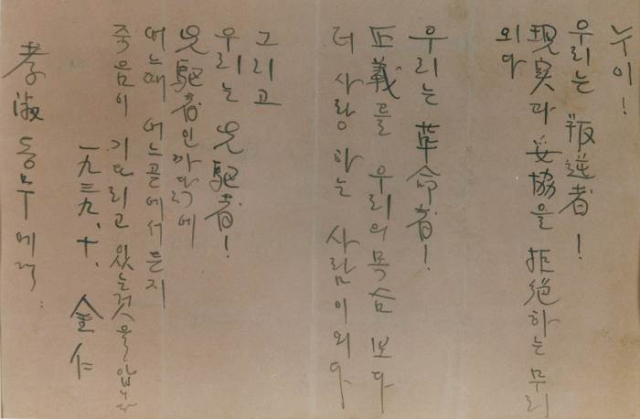 누이!
우리는 叛逆者!
現実과 妥協을 拒絶하는 무리
외다
우리는 革命者!
正義를 우리의 목숨 보다
더 사랑 하는 사람이외다
그리고
우리는 先駆者!
先駆者인 까닭에
어느때 어느곧에서든지
죽음이 기다리고 있는것을 압니다
一九三九、十、 金仁
孝淑동무에게.